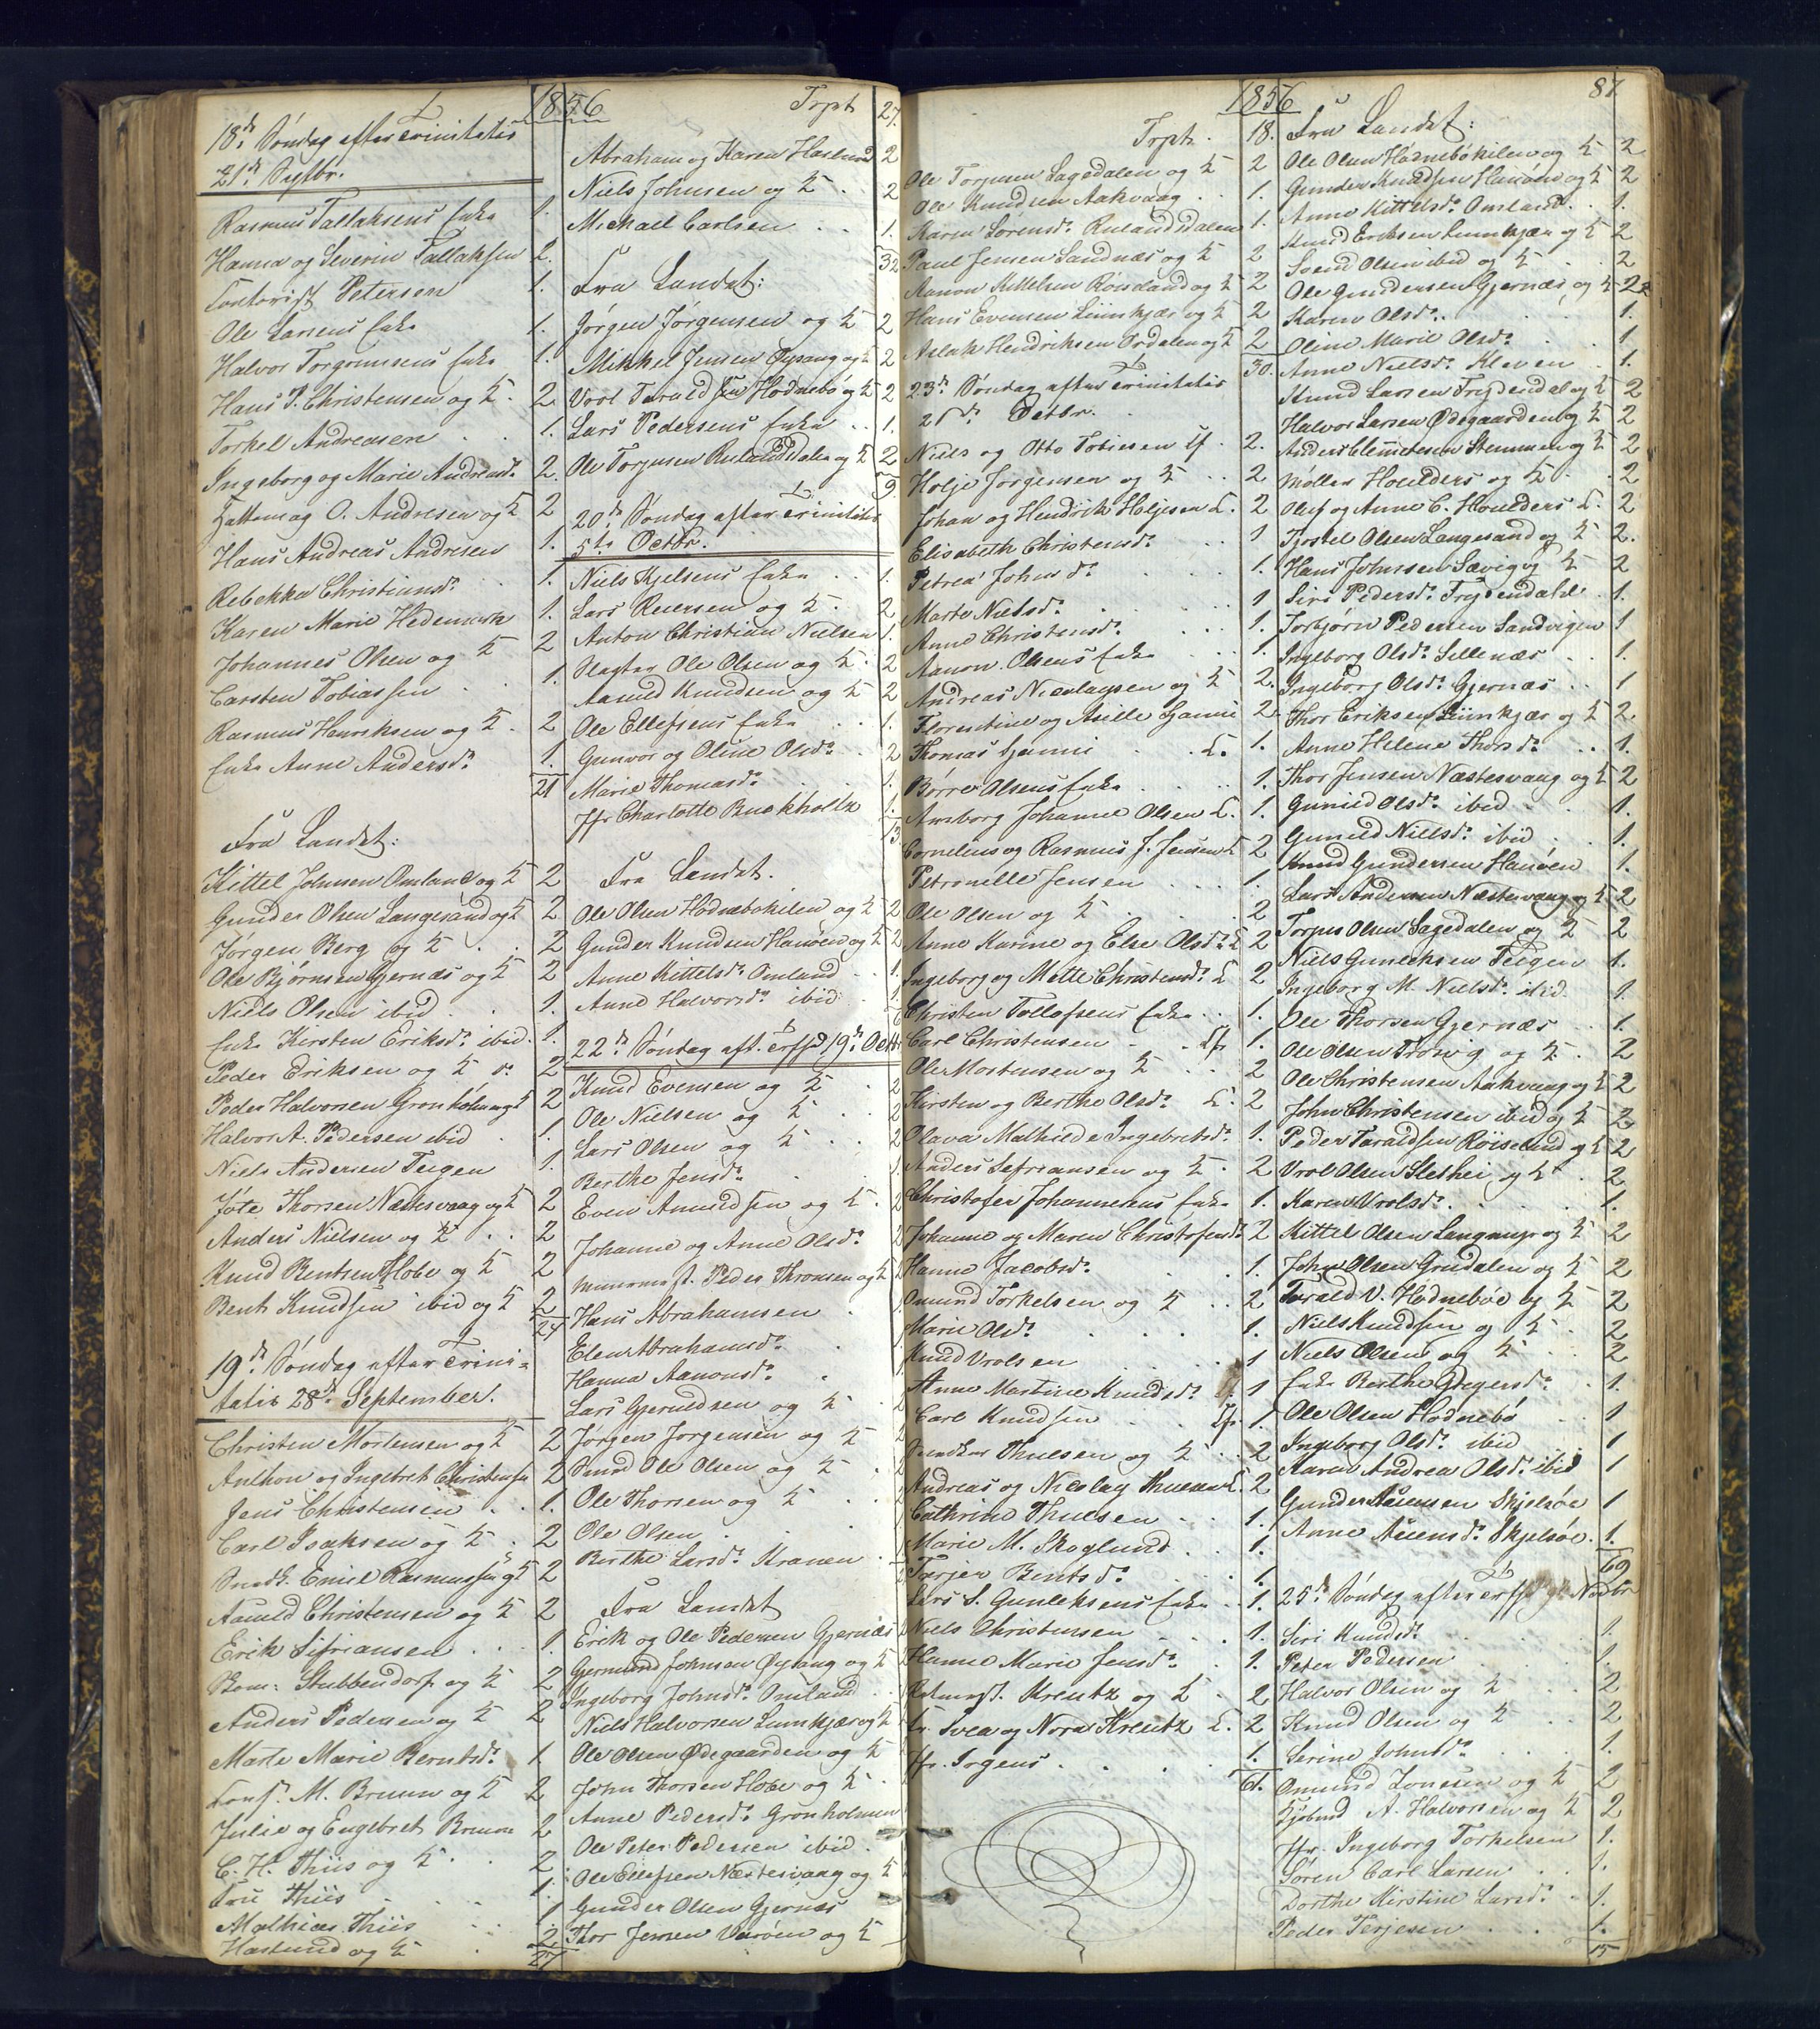 1856
18de Søndag efter Trinitatis
21de Septbr.
Rasmus Tallaksens Enke 1.
Hanna og Severin Tallaksen 2.
Contorist Petersen 1.
Ole Larsens Enke 1.
Halvor Torgrimsens Enke 1.
Hans P. Christensen og H. 2
Torkel Andreasen 1.
Ingeborg og Marie Andreasd. 2.
O. Andresen og H 2
Hans Andreas Andresen 1.
Rebekka Christiansd. 1.
Karen Marie Hedemark 1.
Johannes Olsen og H 2
Carsten Tobiassen 1.
Rasmus Henriksen og H 2
Enke Anne Andersd. 1.
21
Fra Landet:
Kittel Johnsen Omland og H 2
Gunder Olsen Langesand og H 2
Jørgen Berg og H 2
Ole Bjørnsen Gjernæs og H 2
Niels Olsen ibid 1.
Enke Kirsten Eriksd. ibid. 1.
Peder Eriksen og H 2
Peder Halvorsen Gronholm og H 2
Halvor A. Pedersen ibid 1.
Niels Andersen Teigen 1.
Thorsen Næstesvaag og H 2
Anders Nielsen og H 2
Knud Bentsen Hobe og H 2
Bent Knudsen ibid og H 2
24
19de Søndag efter Trini-
tatis 28de September.
Christen Mortensen og H 2
Anthon og Ingebret Christensen 2
Jens Christensen 1.
Carl Isaksen og H 2
Snedk. Emil Rasmussen og H 2
Aanuld Christensen og H 2
Erik Sifriansen 1.
Stubbendorf og H 2
Anders Pedersen og H 2
Marte Marie Berntsd. 1
Cons. M. Bruun og H 2
Julie og Engebret Bruun 2
C. H. Thiis og H 2
Fru Thiis 1.
Mathias Thiis 1
Haslund og H 2
27
Trpt 27.
Abraham og Karen Haslund 2
Niels Johnsen og H 2
Michael Carlsen 1.
32
Fra Landet:
Jørgen Jørgensen og H 2
Mikkel Jensen Øysang og H 2
Vrol Taraldsen Hødnebø og H 2
Lars Pedersens Enke 1.
Ole Torjusen Rulandsdalen og H 2
9
20de Søndag efter Trinitatis
5te Octbr.
Niels Kjelsens Enke 1.
Lars Reiersen og H 2
Anton Christian Nielsen 1.
Slagter Ole Olsen og H 2
Aanuld Knudsen og H 2
Ole Ellefsens Enke 1.
Gunvor og Oline Olsd. 2
Marie Thomasd. 1.
Jfr Charlotte Buckholtz 1.
13
Fra Landet.
Ole Olsen Hødnebøkilen og H 2
Gunder Knudsen Hanøen og H 2
Anne Kittelsd. Omland 1.
Anne Halvorsd. ibid 1.
6
22de Søndag eft. Trefd 19de Octbr
Knud Evensen og H 2
Ole Nielsen og H 2
Lars Olsen og H 2
Berthe Jensd. 1
Even Amundsen og H 2
Johanne og Anne Olsd. 2
Muurmest. Peder Thronsen og H 2
Hans Abrahamsen
Elen Abrahamsd.
Hanna Aanonsd.
Lars Gjeruldsen og H
Jørgen Jørgensen og H
Smed Ole Olsen og H
Ole Thorsen og H
Ole Olsen
Berthe Larsd. Kranen
Fra Landet
Erik og Ole Pedersen Gjernæs
Gjermund Johnsen Øysang og H
Ingeborg Johnsd. Omland
Niels Halvorsen Lunnkjær og H
Ole Olsen Ødegaarden og H
John Thorsen Hobe og H
Anne Pedersd. Gronholmen
Ole Peter Pedersen ibid
Ole Ellefsen Næstesvaag og H
Gunder Olsen Gjernæs
Thor Jensen Varøen og H
1856
87.
Trpt. 18.
Ole Torjusen Lagedalen og H 2
Ole Knudsen Aakvaag 1.
Karen Sørensd. Rulandsdalen 1.
Paul Jensen Sandnæs og H 2
Aanon Kittelsen Røiseland og H 2
Hans Evensen Linnkjær og H 2
Aslak Hendriksen Ordalen og H 2
30.
23de Søndag efter Trinitatis
26de Octbr.
Niels og Otto Tobiesen 2.
Holje Jørgensen og H 2
Johan og Hendrik Holjesen C. 2
Elisabeth Christensd. 1
Petrea Johnsd. 1.
Marte Nielsd. 1
Anne Christensd. 1.
Aanon Olsens Enke 1.
Andreas Nicolaysen og H 2.
Florentine og Asille Hannii 2
Thomas Hannii C. 1.
Børre Olsens Enke 1.
Amborg Johanne Olsen C. 1.
Cornelius og Rasmus J. Jensen C 2
Petronelle Jensen 1.
Ole Olsen og H 2
Anne Karine og Else Olsd. C 2
Ingeborg og Mette Christensd. C 2
Christen Tollefsens Enke 1.
Carl Christensen 1.
Ole Mortensen og H 2
Kirsten og Berthe Olsd. C. 2
Olava Mathilde Ingebretsd. 1.
Anders Sefriansen og H 2
Christofer Johannesens Enke 1.
Johanne og Maren Christofersd. 2
Hanne Jacobsd. 1.
Omund Torkelsen og H 2
Marie Olsd. 1.
Knud Vrolsen 1
Anne Martine Knudsd. 1
Carl Knudsen 1.
Snedker Thulsen og H 2
Andreas og Nicolay Thulsen C. 2
Cathrine Thulsen 1.
Marie M. Skoglund 1.
Tarjer Bentsd. 1.
Lars S. Gunleksens Enke 1.
Niels Christensen 1.
Hanne Marie Jensd. 1.
Kreutz og H 2
Fr. Svea og Nora Kreutz C. 2
Jfr. Irgens 1.
61.
Fra Landet:
Ole Olsen Hødnebøkilen og H 2
Gunder Knudsen Hanøen og H 2
Anne Kittelsd. Omland 1.
Knud Eriksen Lunnkjær og H 2
Svend Olsen ibid og H 2
Ole Gundersen Gjernæs og H 2
Karen Olsd. 1.
Oline Marie Olsd. 1
Anne Nielsd. Kleven 1.
Knud Larsen Frydendal og H 2
Halvor Larsen Ødegaarden og H 2
Anders Clemmetsen Stemmen og H 2
Møller Houlders og H 2
Oluf og Anne C. Houlders C. 2
Tjostel Olsen Langesand og H 2.
Hans Johnsen Sævig og H 2
Siri Pedersd. Frydendahl 1.
Torbjørn Pedersen Sandvigen 1
Ingeborg Olsd. Sellenæs 1.
Ingeborg Olsd. Gjernæs 1
Thor Eriksen Linnkjær og H 2
Anne Helene Thorsd. 1.
Thor Jensen Næstesvaag og H 2
Gunild Olsd. ibid 1.
Gunild Nielsd. ibid 1.
Knud Gundersen Hanøen 1.
Lars Andersen Næstesvaag og H 2
Torjus Olsen Lagedalen og H 2
Niels Gunleksen Teigen 1.
Ingeborg M. Nielsd. ibid 1.
Ole Thorsen Gjernæs 1.
Ole Olsen Trovig og H 2
Ole Christensen Aakvaag og H 2
John Christensen ibid og H 2
Peder Taraldsen Røiseland og H 2
Vrol Olsen Slethei og H 2
Karen Vrolsd. 1.
Kittel Olsen Langmyr og H 2
John Olsen Grudalen og H 2
Tarald V. Hødnebøe og H 2
Niels Knudsen og H 2
Niels Olsen og H 2
Enke Berthe Gregersd. 1.
Ole Olsen Hødnebø 1
Ingeborg Olsd. ibid 1
Karen Andrea Olsd. ibid 1
Gunder Auensen Skjelsøe 1
Anne Auensd. Skjelsøe 1.
69
25de Søndag efter Trefd 9de Novbr
Siri Knudsd. 1.
Peter Pedersen 1.
Halvor Olsen og H 2
Knud Olsen og H 2
Serine Johnsd. 1.
Omund Jonsen og H 2
Kjøbmd A. Halvorsen og H 2
Jfr. Ingeborg Torkelsen 1.
Søren Carl Larsen 1.
Dorthe Kirstine Larsd. 1.
Peder Terjesen 1.
15